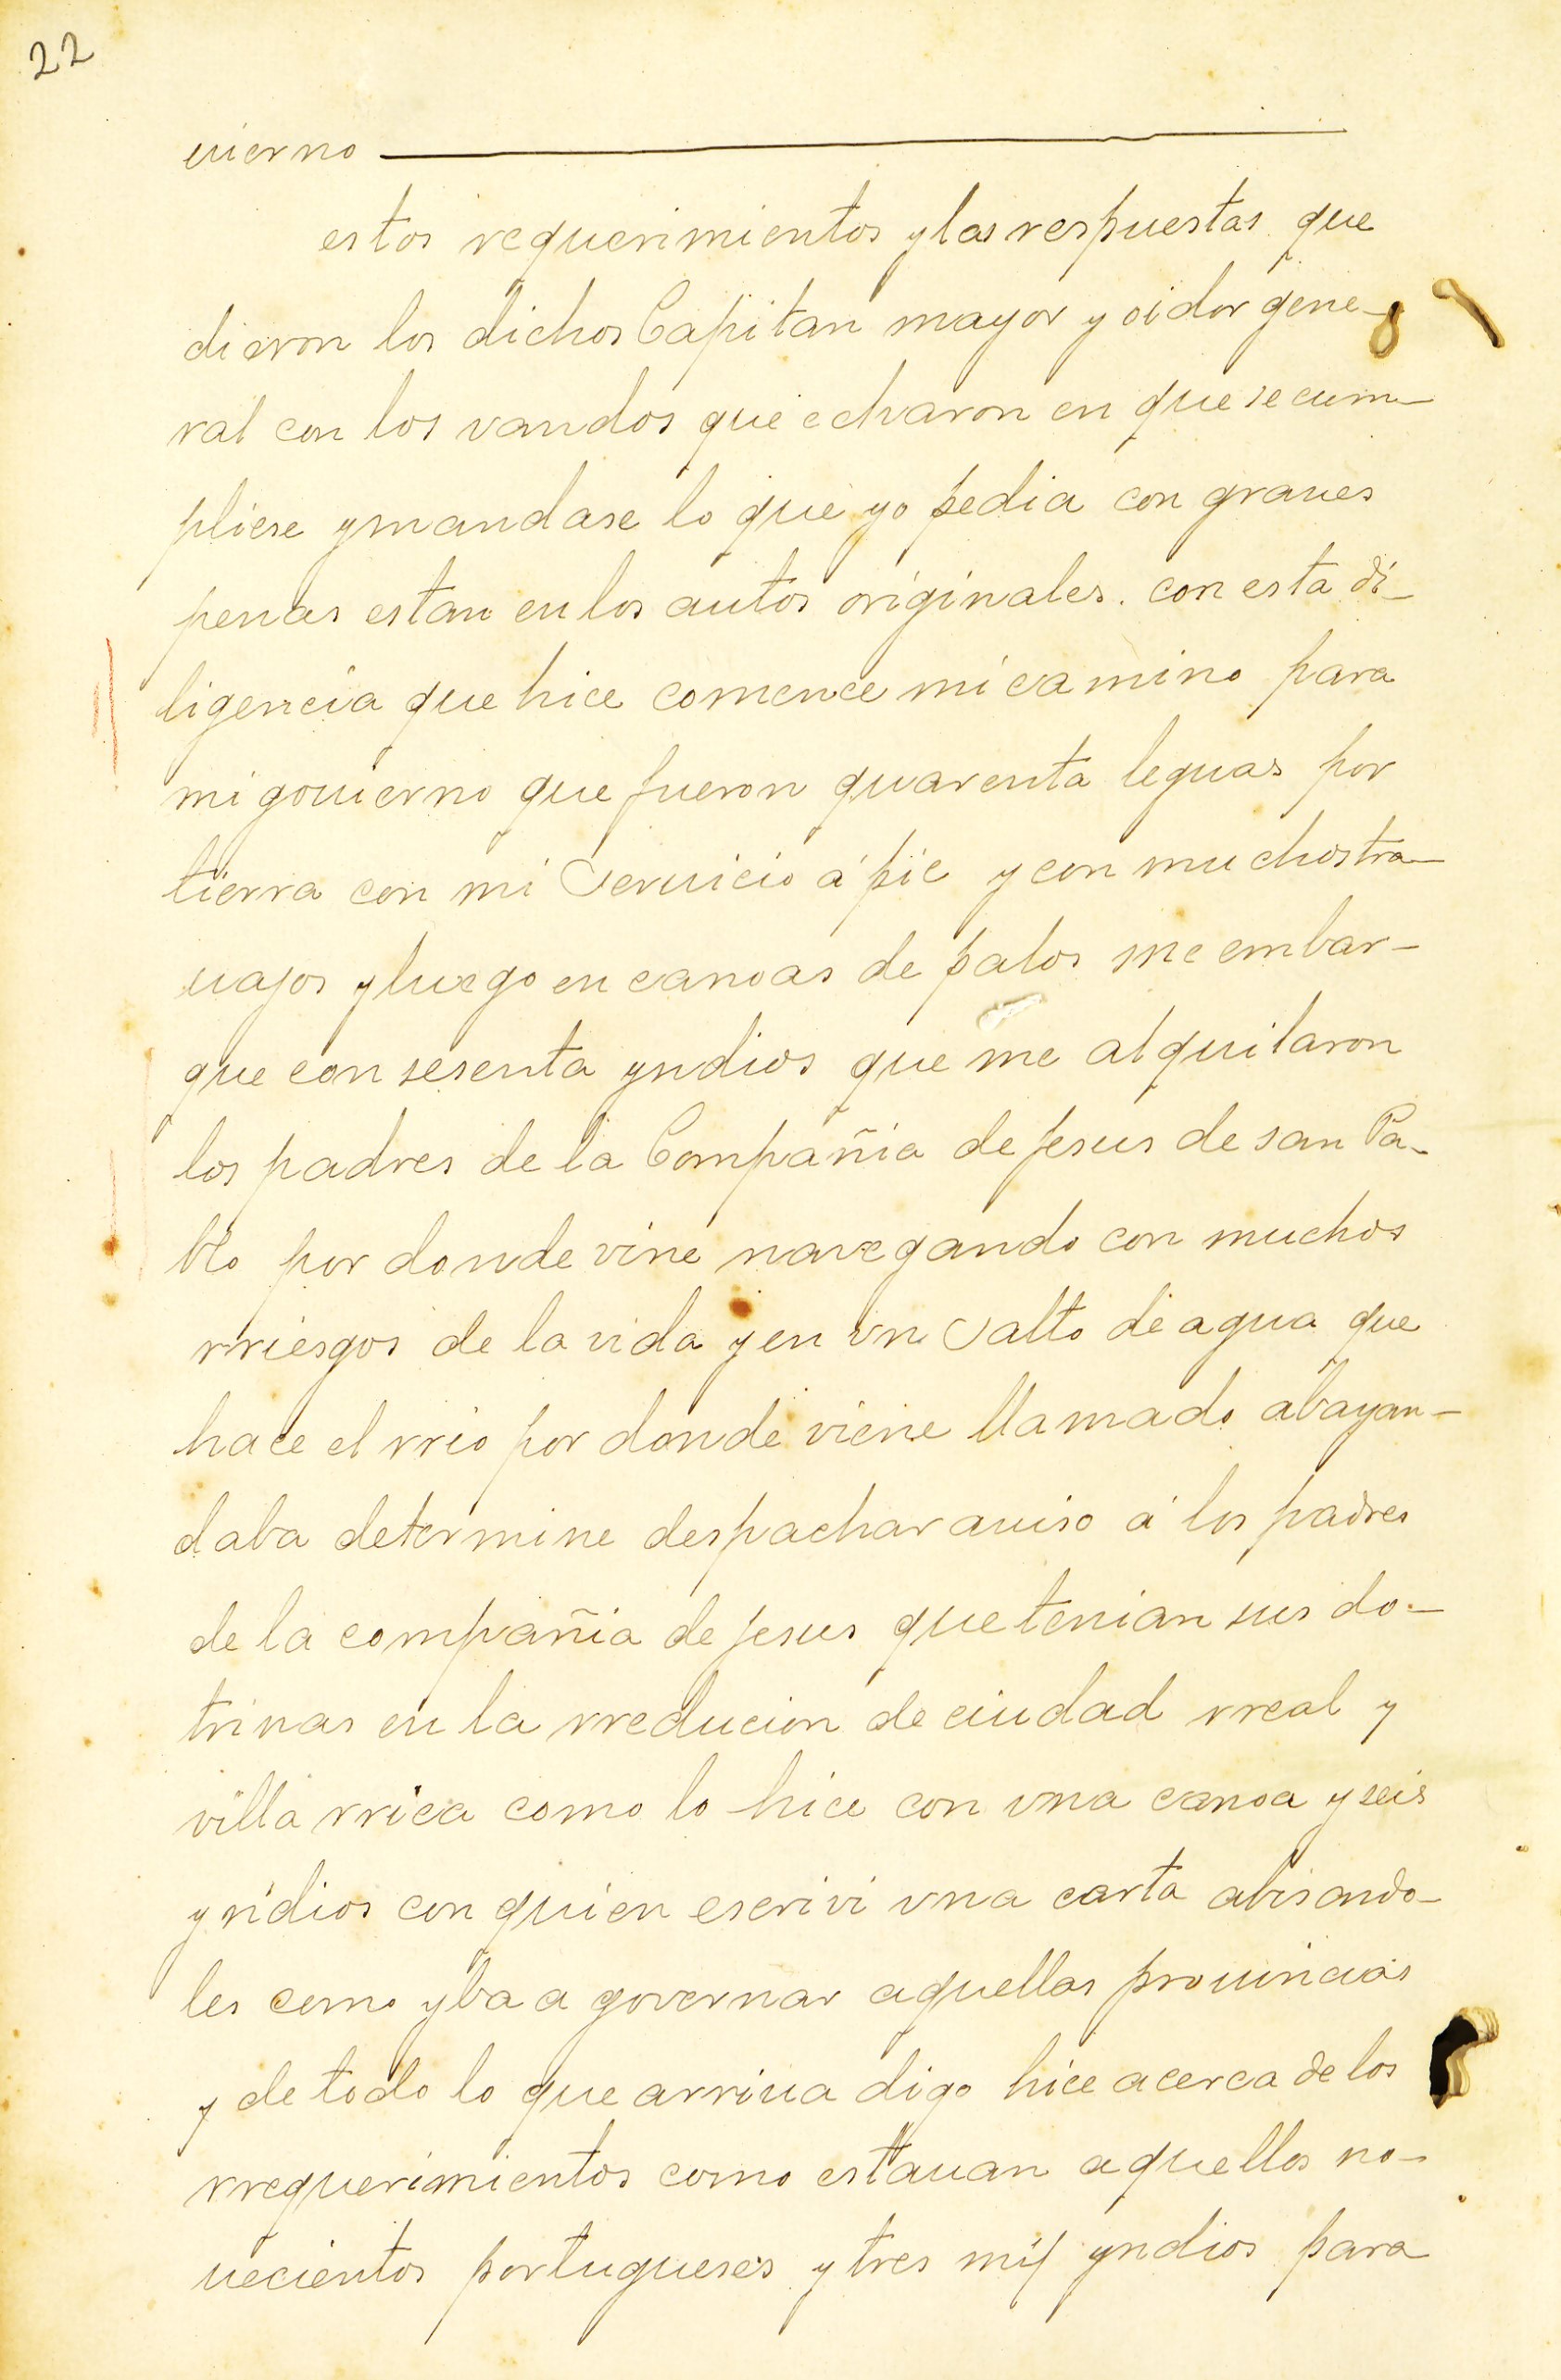 22
uierno
estos requerimientos y las respuestas que
dieron los dichos Capitan mayor y oidor gene-
ral con los vandos que echaron en que se cum-
pliese y mandase lo que yo pedia con graues
penas estan en los autos originales. con esta di-
ligencia que hice comence mi camino para
mi gouierno que fueron quarenta leguas por
tierra con mi Seruicio á pie y con muchos tra-
uajos y luego en canoas de palos me embar-
que con sesenta yndios que me alquilaron
los padres de la Compañia de Jesus de san Pa-
blo por donde vine navegando con muchos
rriesgos de la vida y en vn Salto de agua que
hace el rrio por donde viene llamado abayan-
daba determine despachar auiso á los padres
de la compañia de Jesus que tenian sus do-
trinas en la rreducion de ciudad rreal y
villa rrica como lo hice con vna canoa y seis
yndios con quien escrivi vna carta abisando-
les como yba a governar aquellas prouincias
y de todo lo que arriua digo hice acerca de los
rrequerimientos como estauan aquellos no-
uecientos portugueses y tres mil yndios para